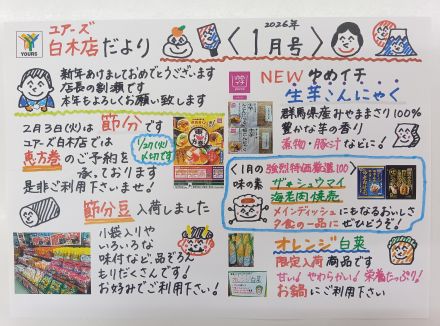 YOURS
ユアーズ
白木店だより
2026年
〈1月号〉
新年あけましておめでとうございます
店長の割瀬です
本年もよろしくお願い致します
2月3日(火)は節分です
ユアーズ白木店では
恵方巻のご予約を
承っております
是非ご利用下さいませ!
1/27(火)
〆切です
節分豆 入荷しました
小袋入りや
いろいろな
味付など、品ぞろえ
もりだくさんです!
お好みでご利用下さい!
NEW ゆめイチ
生芋こんにゃく
群馬県産みやままさり100%
豊かな芋の香り
煮物・豚汁などに!
〈1月の強烈特価厳選100
味の素
ザ★シュウマイ
海老肉焼売
メインディッシュにもなるおいしさ
夕食の一品に ぜひどうぞ!
オレンジ白菜
限定入荷商品です
甘い!やわらかい!栄養たっぷり!
お鍋にご利用下さい